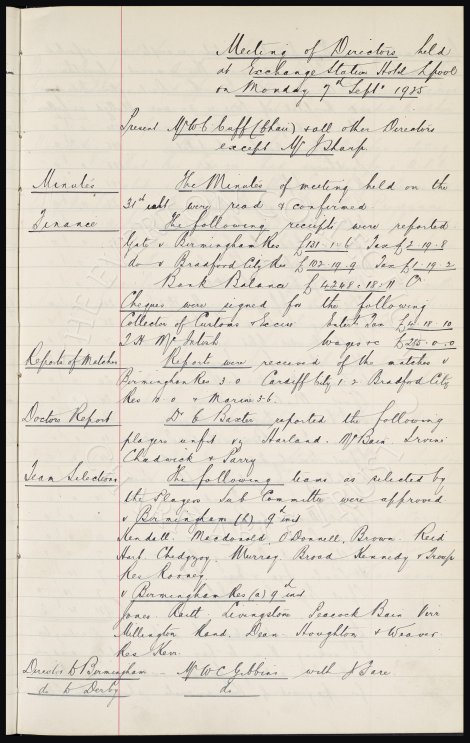 Meeting of Directors held
at Exchange Station Hotel Lpool
on Monday 7th Septr 1925
Present Mr W C Cuff (Chair) & all other Directors
except Mr J Sharp.
Minutes
The Minutes of meeting held on the
31st were read & confirmed
Finance
The following receipts were reported
Gate v Birmingham Res £131-1-6 Tax £2-19-8
do v Bradford City Res £102-19-9 Tax £1-19-2
Bank Balance £4248-18-11
Cheques were signed for the following
Collector of Customs & Excise Entert Tax £4-18-10
T H McIntosh Wages &c £215-0-0
Reports of Matches
Reports were received of the matches v
Birmingham Res 3-0 Cardiff City 1-2 Bradford City
Res 10-0 & Marine 3-6.
Doctors Report
Dr C Baxter reported the following
players unfit vz Harland. McBain. Irvine
Chadwick & Parry
Team Selections
The following teams as selected by
the Players Sub Committee were approved
v Birmingham (h) 9th inst
Kendall. Macdonald, O'Donnell, Brown. Reid
Hart. Chedgzoy, Murray. Broad Kennedy & Troup
Res Rooney
v Birmingham Res (a) 9th inst
Jones. Raitt Livingstone Peacock Bain Virr
Millington Rand. Dean. Houghton & Weaver.
Res Kerr.
Director to Birmingham Mr W C Gibbins with J Sare
do to Derby do